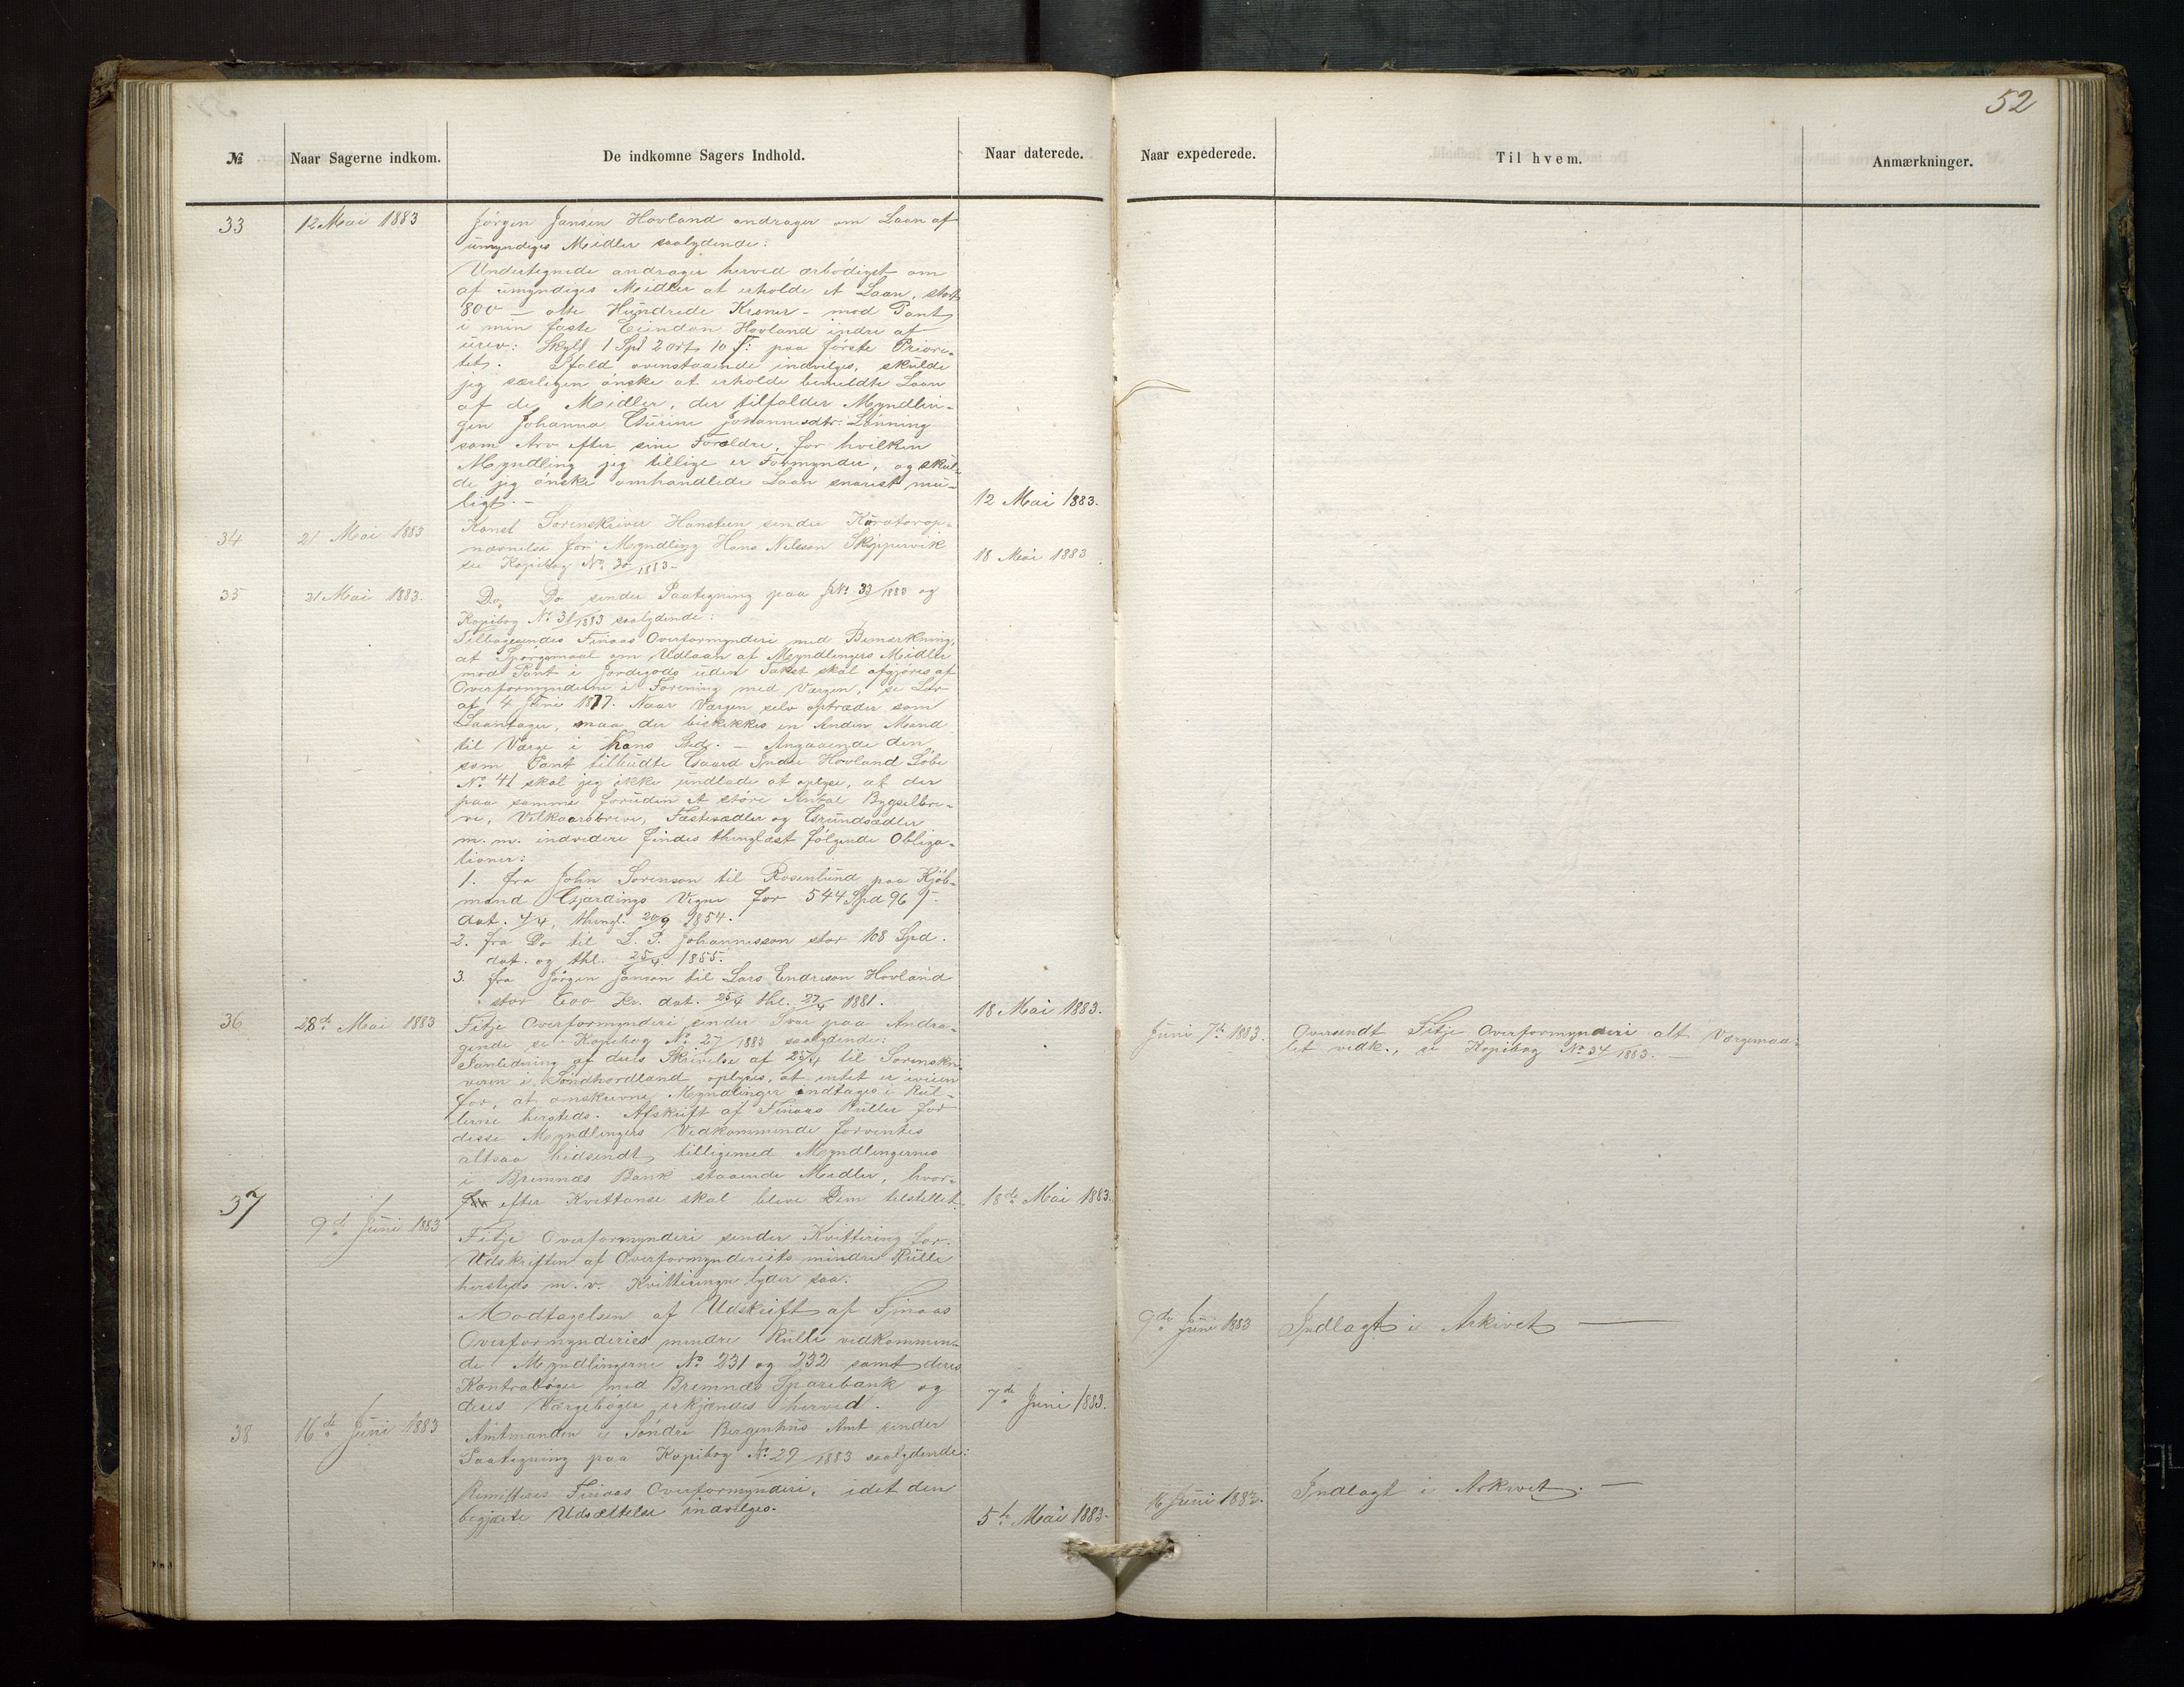 52
№
Naar Sagerne indkom.
De indkomne Sagers Indhold.
Naar daterede.
Naar expederede.
Til hvem.
Anmærkninger.
33
12 Mai 1883
Jörgen Jansen Hovland andrager om Laan af
umyndiges Midler saalydende:
Undertegnede andrager herved ærbödigst om
af umyndiges Midler at erholde et Laan, stort
800 – otte Hundrede Kroner – mod Pant
i min faste Eiendom Hovland indre af
urev: Skyld 1 Spd 2 ort 10 β: paa förste Priori-
tet. Ifald ovenstaaende indvilges, skulde
jeg særligen önske at erholde bemeldte Laan
af de Midler, der tilfalder Myndlin-
gen Johanna Gurine Johannesdtr. Lönning
som Arv efter sine Forældre, for hvilken
Myndling jeg tillige er Formynder, og skul-
de jeg önske omhandlede Laan snarest mu-
ligt. –
12 Mai 1883.
34
21 Mai 1883
Konst Sorenskriver Hansteen sender Kuratorop-
nævnelse for Myndling Hans Nilsson Skippervik
se Kopibog No 30/1883 –
18 Mai 1883
35
21 Mai 1883.
Do Do sender Paategning paa JNo 33/1883 og
Kopibog No 31/1883 saalydende:
Tilbagesendes Finaas Overformynderi med Bemærkning,
at Spörgsmaal om Udlaan af Myndlingers Midler
mod Pant i Jordegods uden Takst skal afgjöres af
Overformynderne i Forening med Værgen, se Lov
af 4 Juni 1877. Naar Værgen selv optræder som
Laantager, maa der beskikkes en Anden Mand
til Værge i hans Sted. – Angaaende den
som Pant tilbudte Gaard Indre Hovland Löbe
No 41 skal jeg ikke undlade at oplyse, at der
paa samme foruden et större Antal Bygselbre-
ve, Vilkaarsbreve, Fæstesedler og Grundsedler
m. m. indvidere findes thinglæst fölgende Obliga-
tioner:
1. fra John Sorenson til Rosenlund paa Kjöb-
mand Gjerdings Vegne for 544 Spd 96 β
dat. 4/4, thingl. 20/9 1854.
2. fra Do til L. P. Johannesson stor 108 Spd.
dat. og thl. 25/4 1855.
3. fra Jörgen Janson til Lars Endreson Hovland
stor 600 Kr. dat. 25/4 thl. 27/4 1881.
18 Mai 1883.
36
28de Mai 1883
Fitje Overformynderi sender Svar paa Andra-
gende se Kopibog No 27/1883 saalydende:
I anledning af deres Skrivelse af 25/4 til Sorenskri-
veren i Söndhordland oplyses, at intet er iveien
for, at omskrevne Myndlinger indtages i Rul-
lerne hersteds. Afskrift af Finaas Ruller for
disse Myndlingers Vedkommende forventes
altsaa hidsendt tilligemed Myndlingernes
i Bremnes Bank staaende Midler, hvor-
efter Kvittanse skal blive Dem tilstillet.
18de Mai 1883.
Juni 7de 1883.
Oversendt Fitje Overformynderi alt Værgemaa-
let vedk., se Kopibog No 34/1883. –
37
9de Juni 1883
Fitje Overformynderi sender Kvittering for
Udskriften af Overformynderiets mindre Rulle
hersteds m. v. Kvitteringen lyder saa:
Modtagelsen af Udskrift af Finaas
Overformynderies mindre Rulle vedkommen-
de Myndlingerne No 231 og 232 samt deres
Kontrabøger med Bremnes Sparebank og
deres Værgebøger erkjendes herved.
7de Juni 1883.
9de Juni 1883
Indlagt i Arkivet
38
16de Juni 1883
Amtmanden i Söndre Bergenhus Amt sender
Paategning paa Kopibog No 29/1883 saalydende:
Remitteres Finaas Overformynderi, idet den
begjærte Udsættelse indvilges.
5te Mai 1883.
16 Juni 1883.
Indlagt i Arkivet. –